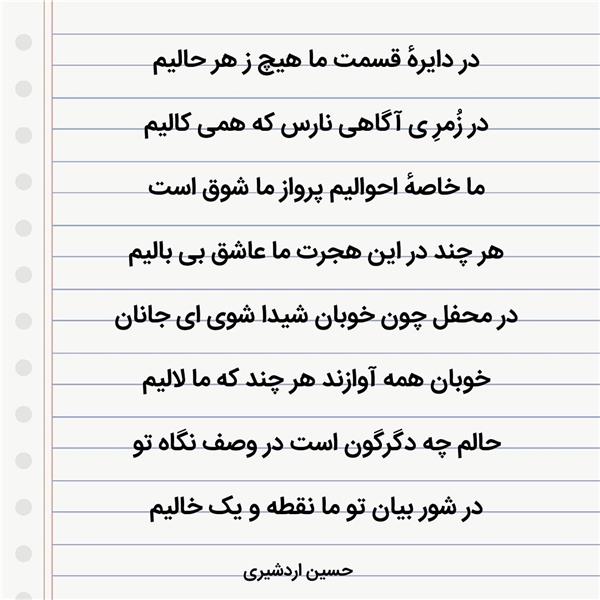 در دایرهٔ قسمت ما هیچ ز هر حالیم
در زُمرِ ی آگاهی نارس که همی کالیم
ما خاصهٔ احوالیم پرواز ما شوق است
هر چند در این هجرت ما عاشق بی بالیم
در محفل چون خوبان شیدا شوی ای جانان
خوبان همه آوازند هر چند که ما لالیم
حالم چه دگرگون است در وصف نگاه تو
در شور بیان تو ما نقطه و یک خالیم
حسین اردشیری